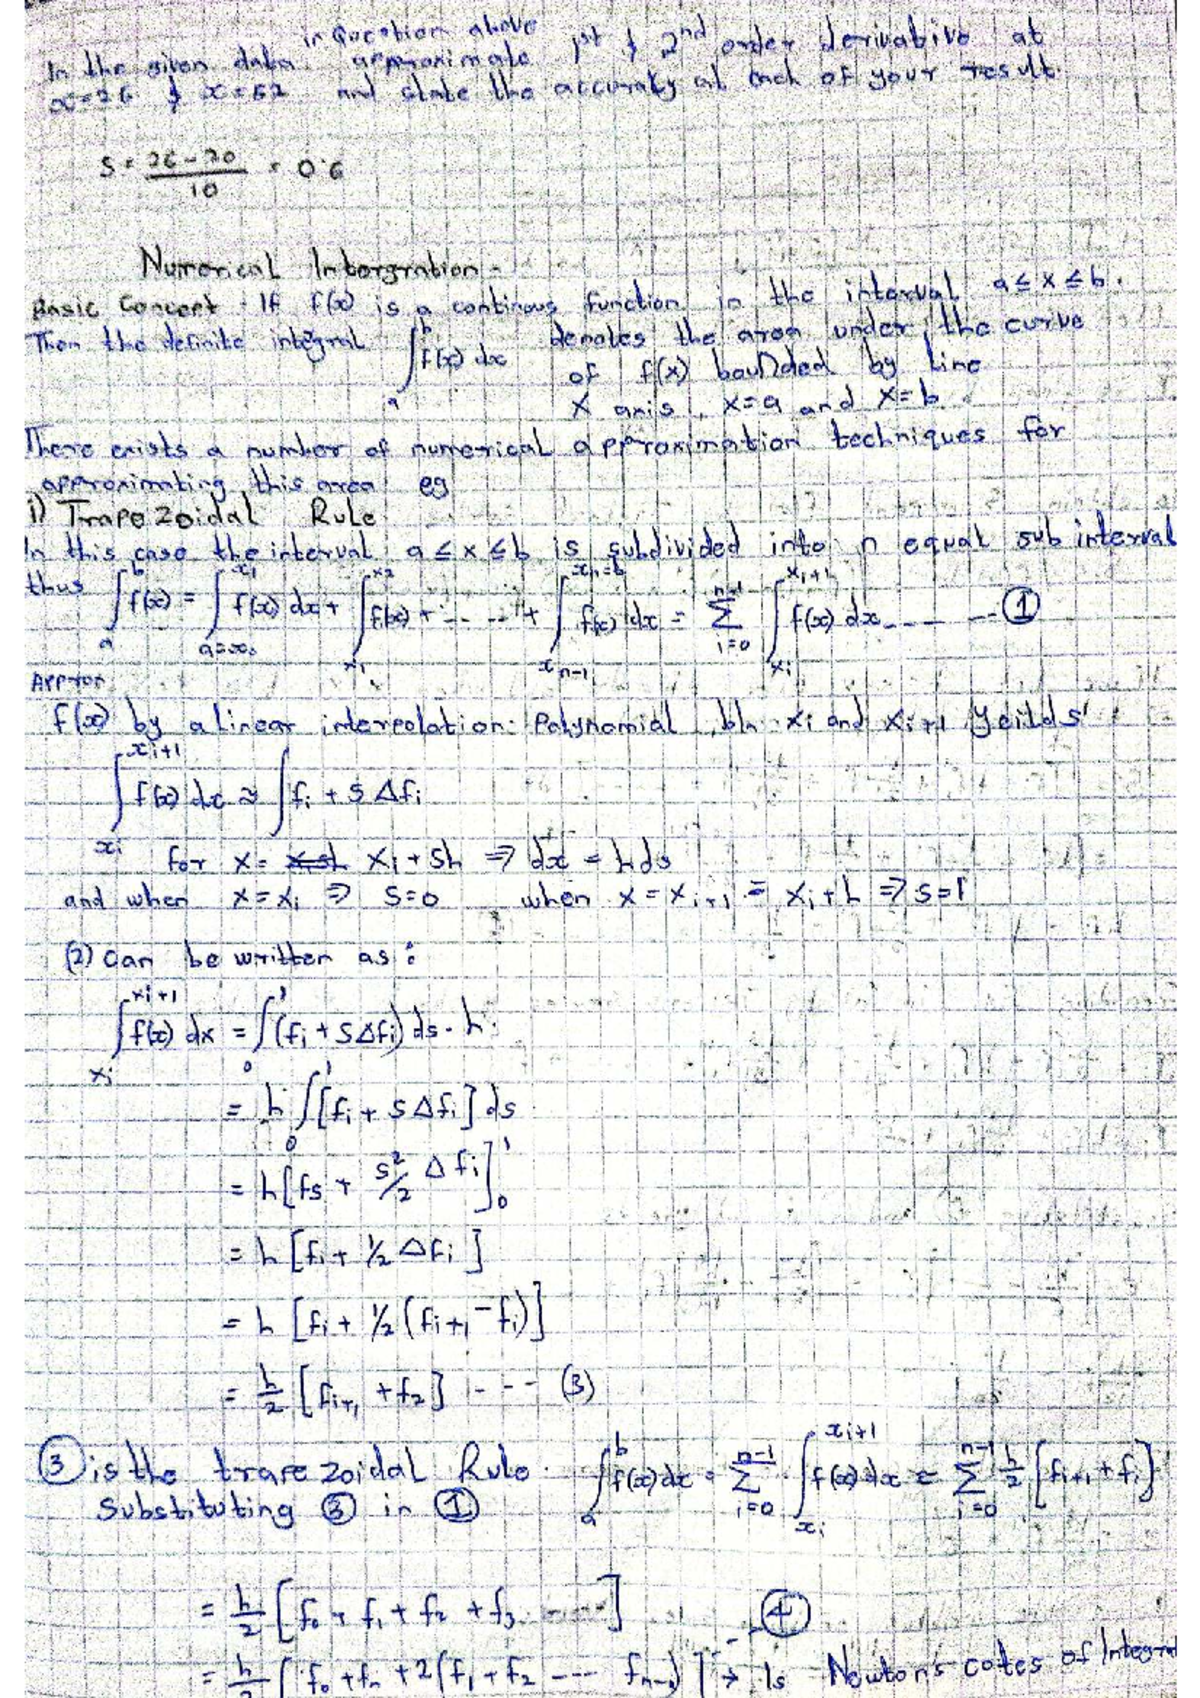 in Question above
In the given data approximate 1st & 2nd order derivative at
x=26 & x=62 and state the accuracy at each of your result.
S = 26-20/10 = 0.6
Numerical Intergration -
Basic Concept - If f(x) is a continous function in the interval a≤x≤b.
Then the definite integral ∫ₐᵇ f(x) dx denotes the area under the curve
of f(x) bounded by line
X axis, x=a and x=b
There exists a number of numerical approximation techniques for
approximating this area eg
i) Trapezoidal Rule
In this case the interval a≤x≤b is subdivided into n equal sub interval
thus ∫ₐᵇ f(x) = ∫_{a=x₀}^{x₁} f(x) dx + ∫_{x₁}^{x₂} f(x) + ... + ∫_{x_{n-1}}^{x_n=b} f(x) dx = Σ_{i=0}^{n-1} ∫_{x_i}^{x_{i+1}} f(x) dx ---- ①
Approx
f(x) by a linear interpolation Polynomial btn xi and xi+1 yeilds
∫_{x_i}^{x_{i+1}} f(x) dx ≈ ∫ fi + sΔfi
for x = xi + sh ⇒ dx = hds
and when x = xi ⇒ s=0 when x = xi+1 = xi+h ⇒ s=1
(2) can be written as:
∫_{x_i}^{x_{i+1}} f(x) dx = ∫₀¹ (fi + sΔfi) ds . h
= h ∫₀¹ [fi + sΔfi] ds
= h [fs + s²/2 Δfi]₀¹
= h [fi + ½ Δfi]
= h [fi + ½ (fi+1 - fi)]
= h/2 [fi+1 + f2] --- (3)
③ is the trapezoidal Rule. ∫ₐᵇ f(x) dx = Σ_{i=0}^{n-1} ∫_{x_i}^{x_{i+1}} f(x) dx = Σ_{i=0}^{n-1} h/2 [fi+1 + fi]
Substituting ③ in ①
= h/2 [f0 + f1 + f2 + f3 ......] ④
= h/2 [f0 + fn + 2(f1 + f2 ---- fn-1)] → Is Newton's cotes of Integra